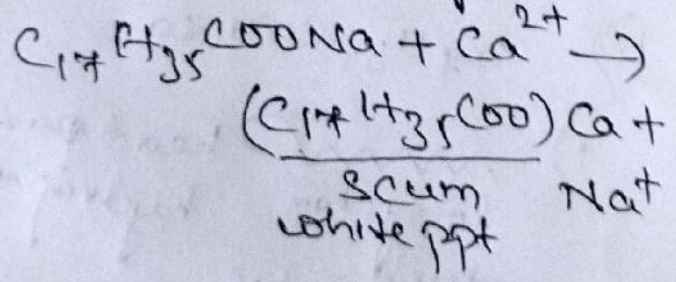 C₁₇H₃₅COONa + Ca²⁺ →
(C₁₇H₃₅COO) Ca +
scum Na⁺
white ppt